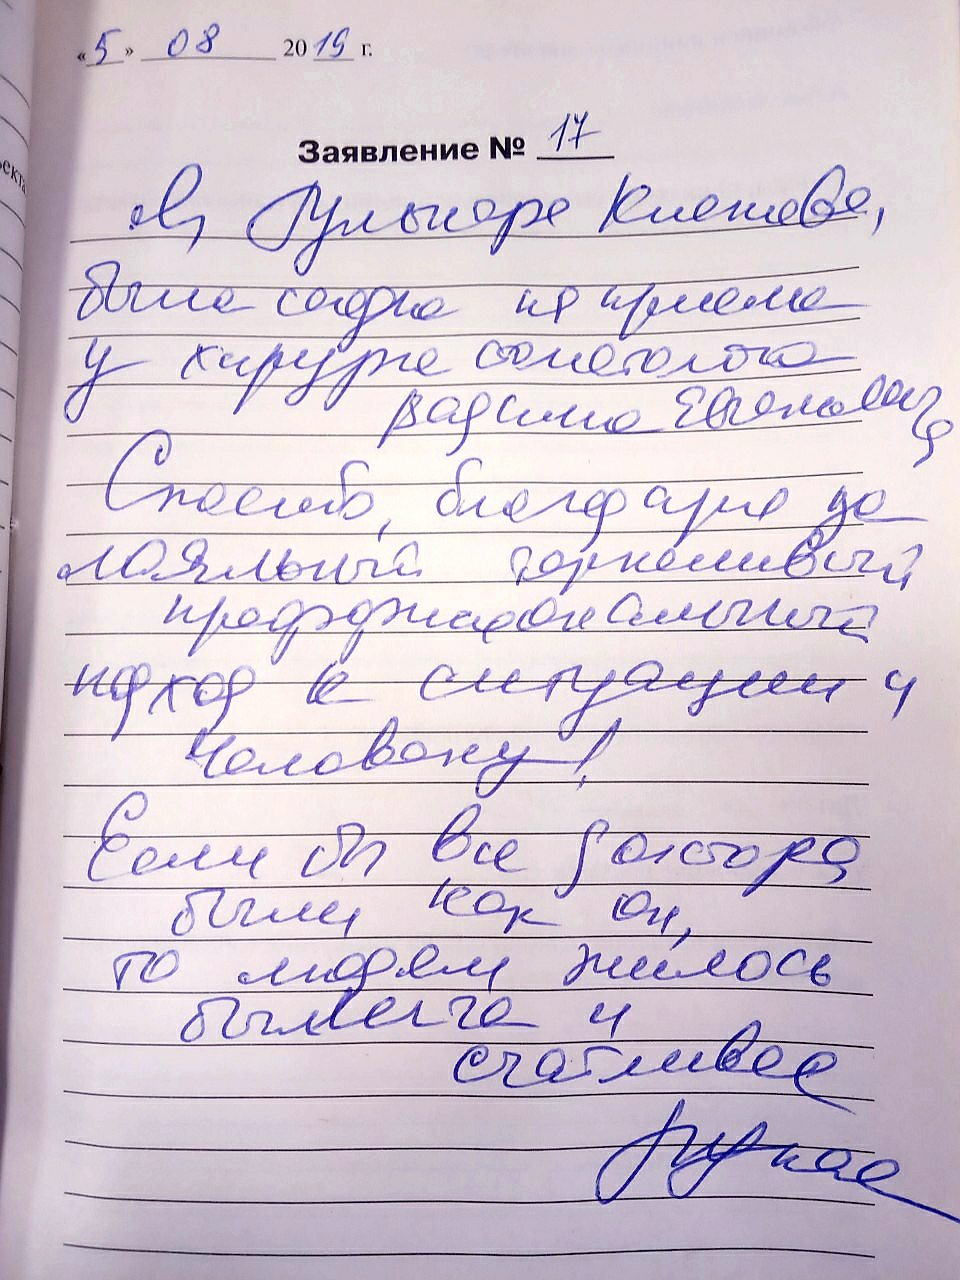 «5» 08 2019 г.
Заявление № 17
Я, Гульнара
была сегодня на приёме
у хирурга стоматолога
Вадима Евгеньевича
Спасибо, благодарю за
лояльный терпеливый
профессиональный
подход к ситуации и
человеку!
Если бы все доктора
были как он,
то людям жилось
бы легче и
счастливее